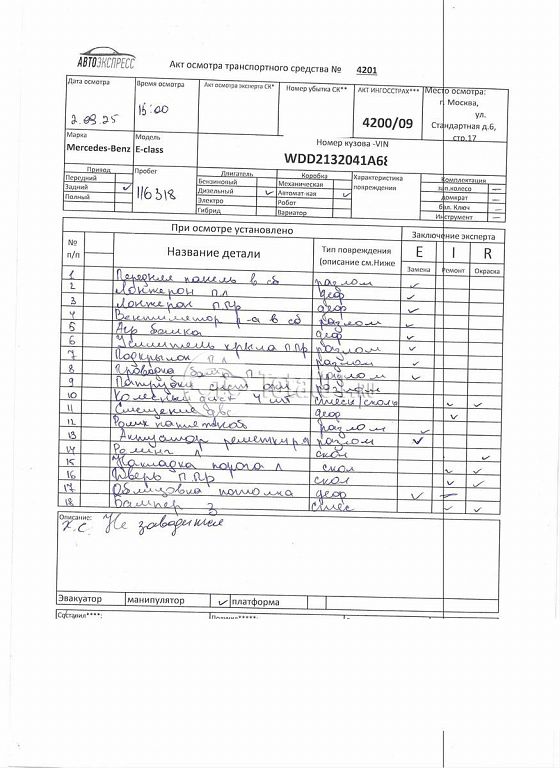 АВТОЭКСПРЕСС
Акт осмотра транспортного средства № 4201
Дата осмотра Время осмотра Акт осмотра эксперта СК* Номер убытка СК** АКТ ИНГОССТРАХ*** Место осмотра:
г. Москва,
ул.
Стандартная д.6,
стр.17
2.09.25 15:00 4200/09
Марка Модель Номер кузова -VIN
Mercedes-Benz E-class WDD2132041A68
Привод Пробег Двигатель Коробка Характеристика повреждения Комплектация
Передний Бензиновый Механическая зап.колесо —
Задний ✓ 116318 Дизельный ✓ Автомат-кая ✓ домкрат —
Полный Электро Робот бал. Ключ —
Гибрид Вариатор Инструмент —
При осмотре установлено Заключение эксперта
№ п/п Название детали Тип повреждения (описание см.Ниже E I R
Замена Ремонт Окраска
1 Передняя панель в сб разлом ✓
2 Лонжерон П.Л деф ✓
3 Лонжерон П.Пр деф ✓
4 Вентилятор р-а в сб разлом ✓
5 балка деф ✓
6 Усилитель крыла П.Пр разлом ✓
7 Подкрылок П.Л разлом ✓
8 Проводка П разлом ✓
9 Патрубки
10 4 шт ✓ ✓
11 Смещение двс деф ✓
12 Ролик разлом ✓
13 Актуатор разлом ✓
14 Л скол ✓
15 Накладка порога Л скол ✓ ✓
16 Дверь П.Пр скол ✓ ✓
17 Облицовка потолка деф ✓
18 Бампер З ✓ ✓
Описание:
х.с. Не заводится
Эвакуатор манипулятор ✓ платформа
Составил****: